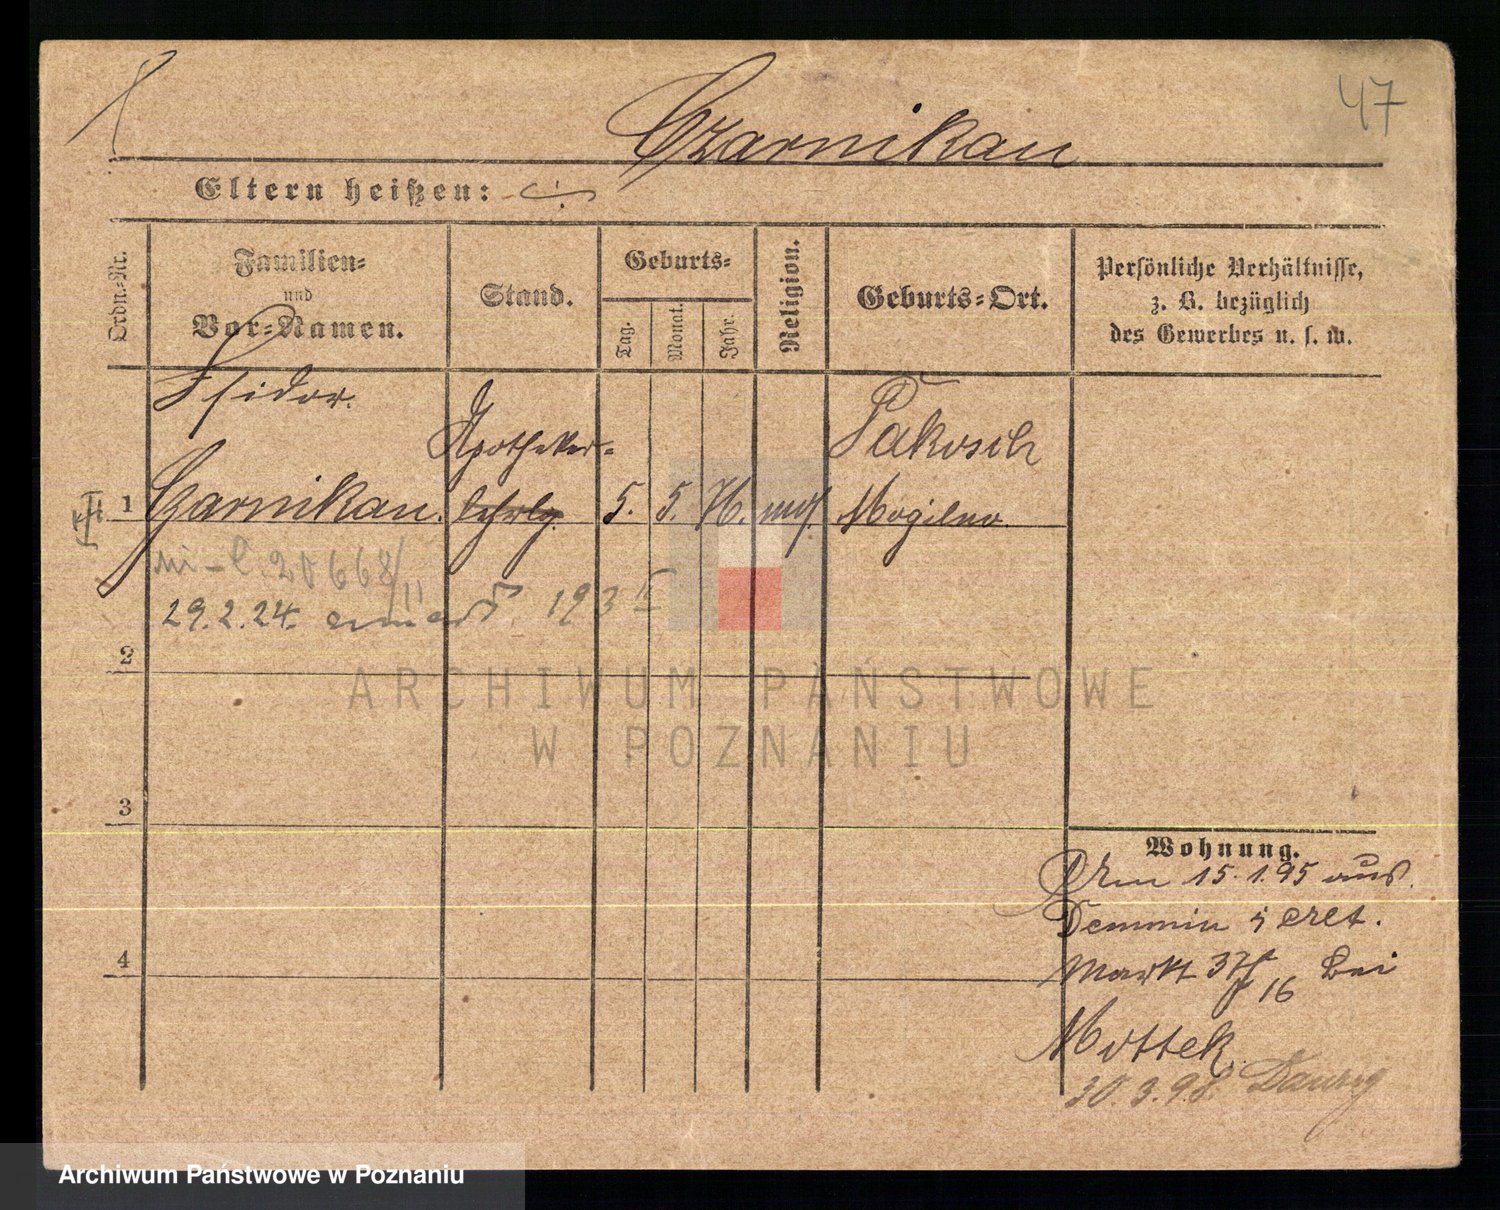 47
Czarnikau
Eltern heißen:
Ordn.-Nr.
Familien-
und
Vor-Namen.
Stand.
Geburts-
Tag.
Monat.
Jahr.
Religion.
Geburts-Ort.
Persönliche Verhältnisse,
z. B. bezüglich
des Gewerbes u. s. w.
Isidor
Apotheker-
Pakosch
1
Czarnikau.
lehrlg.
5.
5.
Mogilno
20668/11
29.2.24.
2
ARCHIWUM PAŃSTWOWE
W POZNANIU
3
Wohnung.
15.1.95 aus
Demmin
4
Markt 37/16 bei
Mottek
30.3.98. Danzig
Archiwum Państwowe w Poznaniu